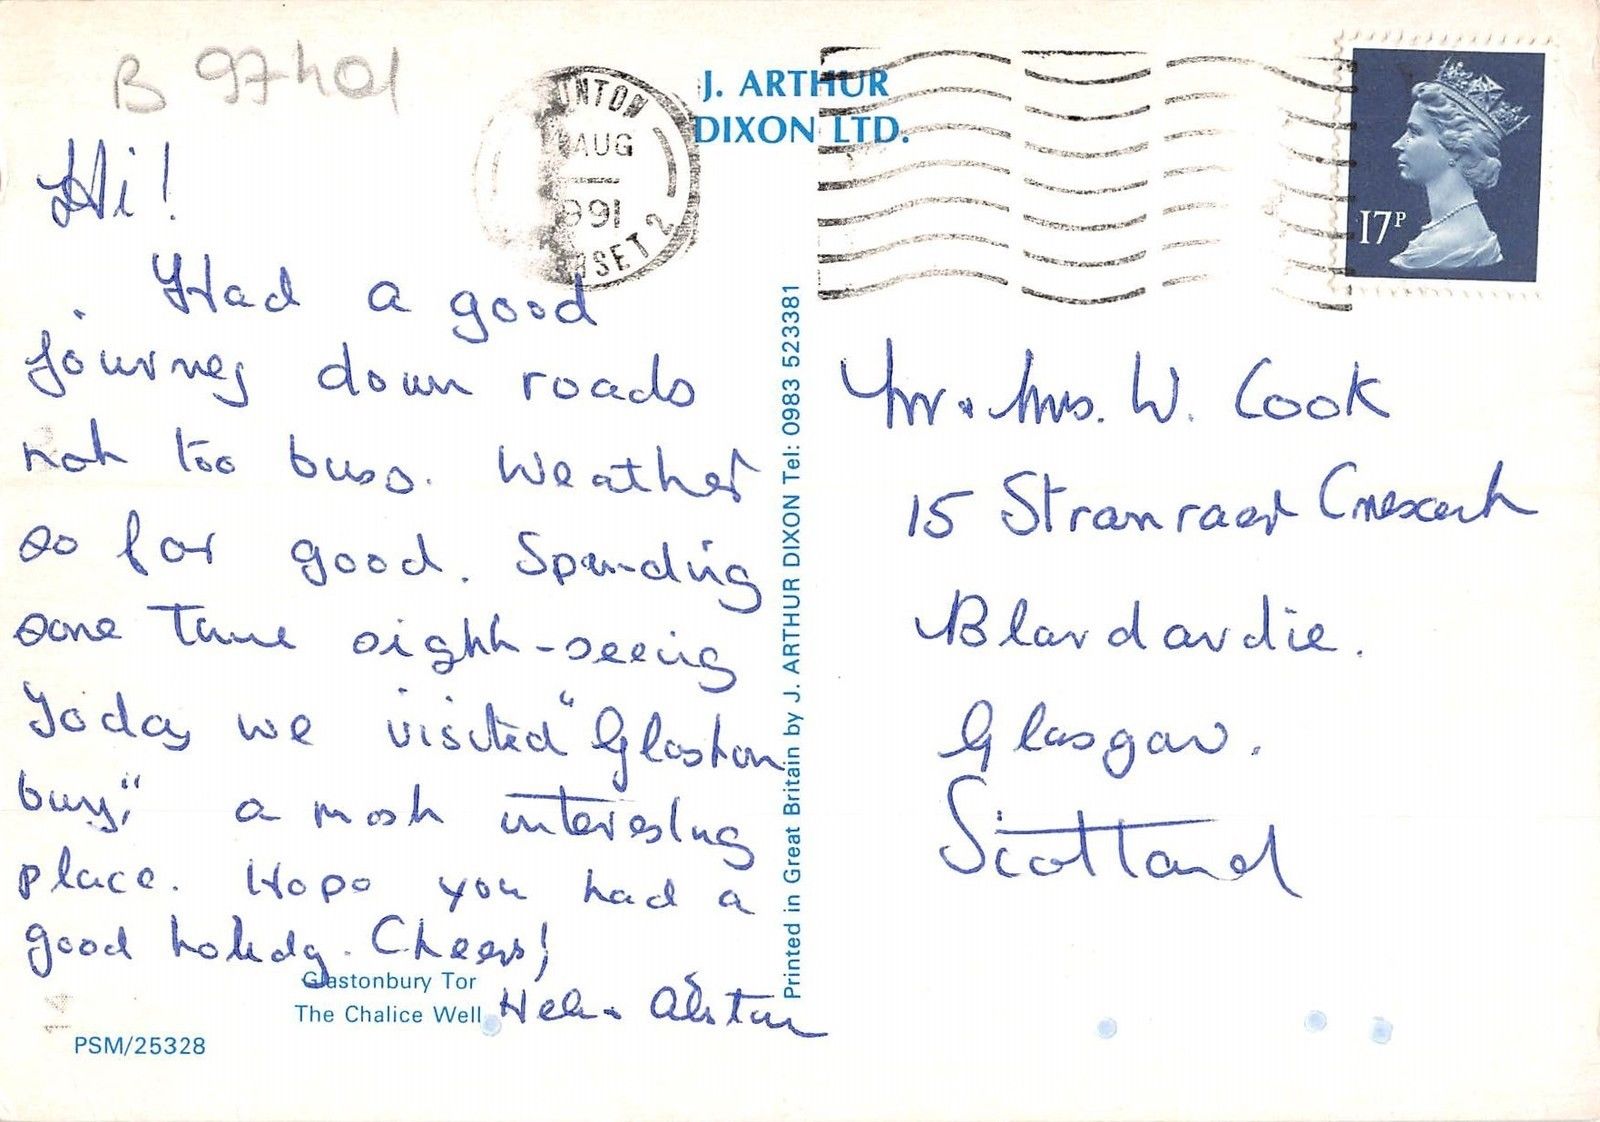 B 97401
J. ARTHUR
DIXON LTD.
UNTON
AUG
991
RSET 2
17P
Hi!
Had a good
journey down roads
not too busy. Weather
so far good. Spending
some time sight-seeing
Today we visited "Glaston
bury," a most interesting
place. Hope you had a
good holiday. Cheers!
Helen Alistair
Glastonbury Tor
The Chalice Well
PSM/25328
Printed in Great Britain by J. ARTHUR DIXON Tel: 0983 523381
Mr & Mrs. W. Cook
15 Stranraer Crescent
Blairdardie.
Glasgow.
Scotland
14